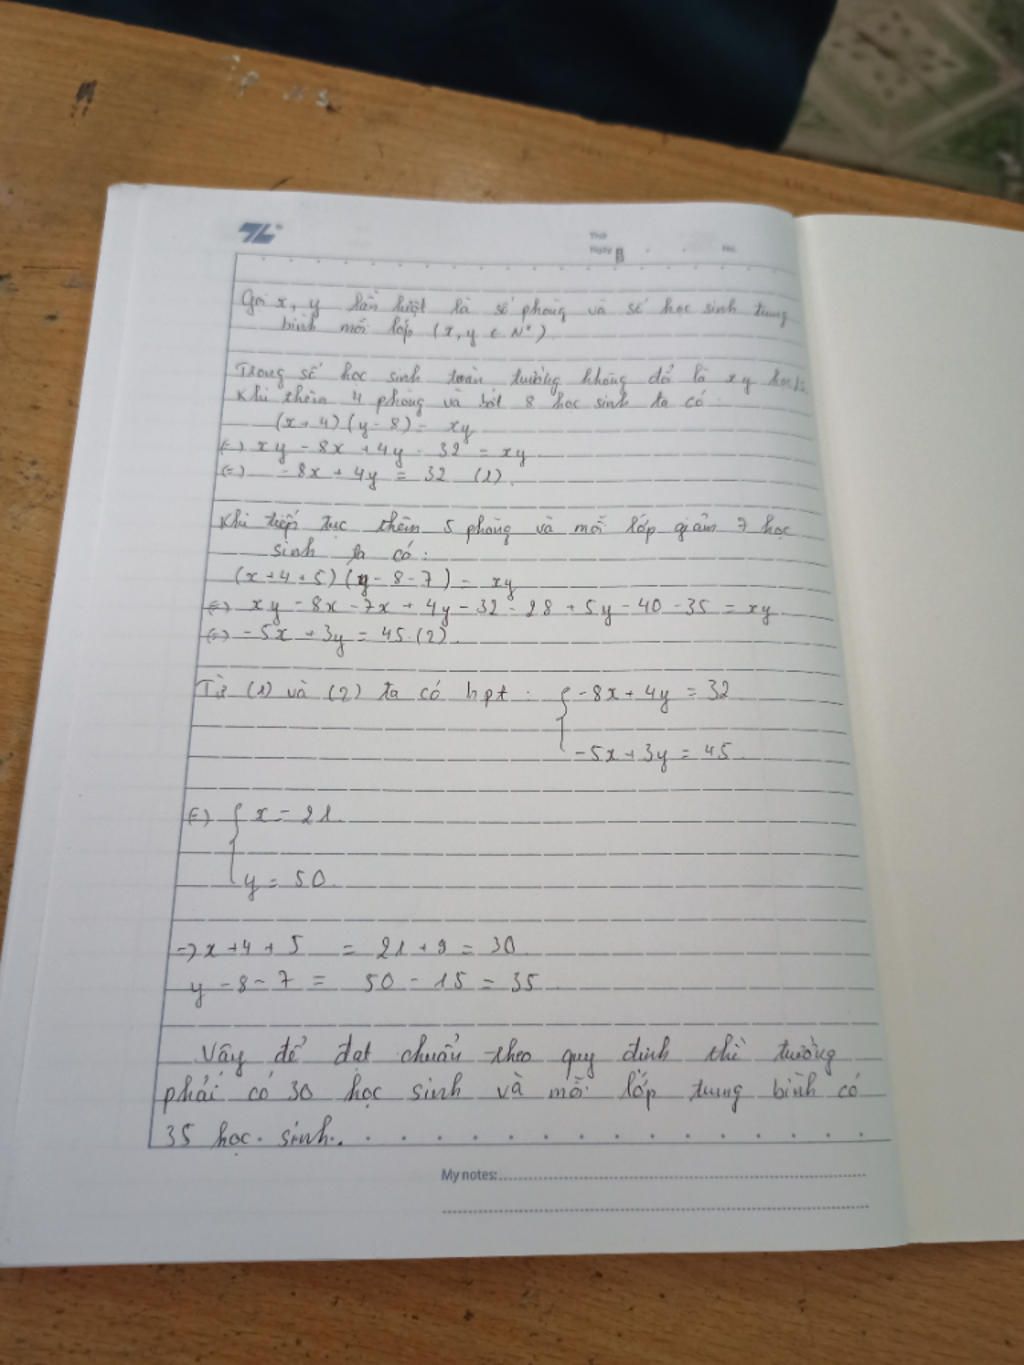 TL
Thứ
Ngày
No.
Gọi x, y lần lượt là số phòng và số học sinh trung
bình mỗi lớp (x, y ∈ N*)
Trong số học sinh toàn trường không đổi là xy
Khi thêm 4 phòng và bớt 8 học sinh ta có:
(x+4)(y-8) = xy
(=) xy - 8x + 4y - 32 = xy
(=) -8x + 4y = 32 (1).
Khi tiếp tục thêm 5 phòng và mỗi lớp giảm 7 học
sinh ta có:
(x+4+5)(y-8-7) = xy
(=) xy - 8x - 7x + 4y - 32 - 28 + 5y - 40 - 35 = xy
(=) -5x + 3y = 45.(2).
Từ (1) và (2) ta có hpt : { -8x + 4y = 32
-5x + 3y = 45.
(=) { x = 21.
y = 50.
=> x+4+5 = 21 + 9 = 30
y - 8 - 7 = 50 - 15 = 35.
Vậy để đạt chuẩn theo quy định thì trường
phải có 30 học sinh và mỗi lớp trung bình có
35 học sinh.
My notes: